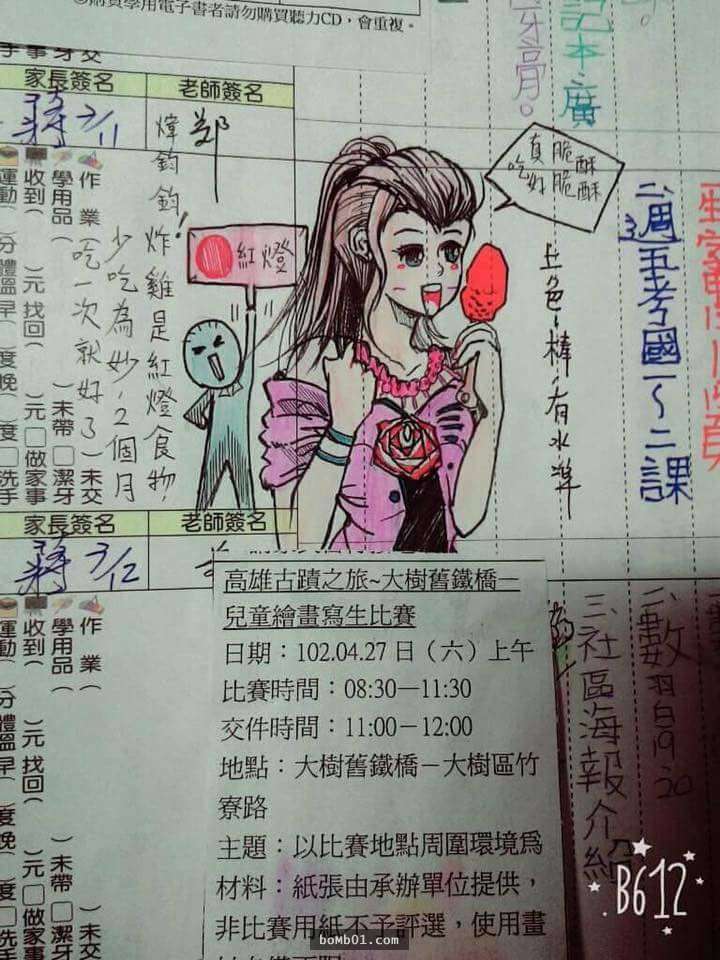 購買學用電子書者請勿購買聽力CD，會重複。
記本、廣
牙膏。
家長簽名
老師簽名
蔣 3/11
鄭
真脆酥
吃好脆酥
煒鈞鈞！炸雞是紅燈食物，
少吃為妙，2個月
吃一次就好了
紅燈
上色~棒，有水準
二、週五考國一～二課
作業（
學用品（
收到（
）元 找回（
）元
）未帶
）未交
□做家事
□潔牙
□洗手
家長簽名
老師簽名
蔣 3/12
作業（
學用品（
收到（
）元 找回（
）元
）未帶
）未交
□做家事
□潔牙
高雄古蹟之旅~大樹舊鐵橋－
兒童繪畫寫生比賽
日期：102.04.27日（六）上午
比賽時間：08:30－11:30
交件時間：11:00－12:00
地點：大樹舊鐵橋－大樹區竹
寮路
主題：以比賽地點周圍環境為
材料：紙張由承辦單位提供，
非比賽用紙不予評選，使用畫
二、數習白19.20
三、社區海報介紹
B612
bomb01.com